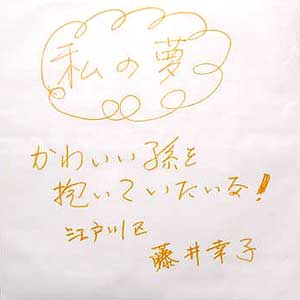 私の夢
かわいい孫を
抱いていたいな!
江戸川区
藤井幸子